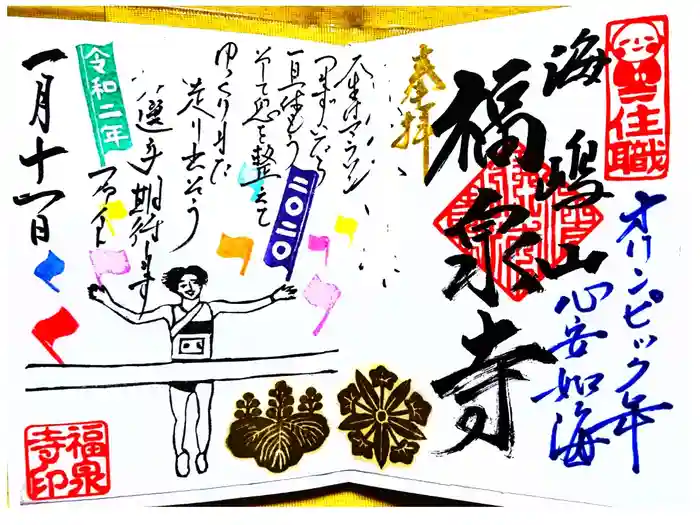 一住職
オリンピック年
心安如海
海嶋山
奉拝
福泉寺
人生はマラソン
つまずいたら
一旦休もう
そして息を整えて
ゆっくりまた
走り出そう
選手期待します
二〇二〇
令和二年
一月十一日
福泉寺印